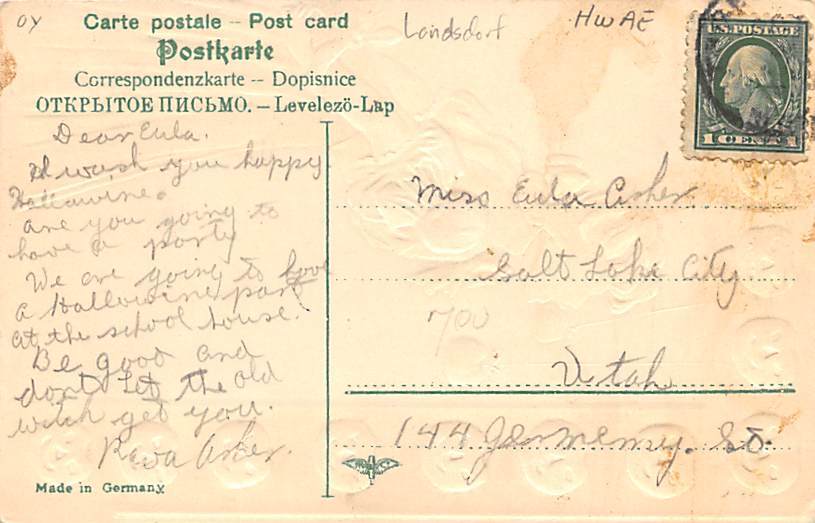 OY
Carte postale – Post card
Landsdorf
HWAE
Postkarte
Correspondenzkarte -- Dopisnice
ОТКРЫТОЕ ПИСЬМО. – Levelezö-Lap
U.S. POSTAGE
1 CENT 1
Dear Eula.
I wash you happy
Hallawine.
are you going to
have a party
We are going to have
a Hallowine part
at the school house.
Be good and
dont let the old
witch get you.
Reva Asher.
Miss Eula Asher
Salt Lake City
700
Utah
144 St.
Made in Germany